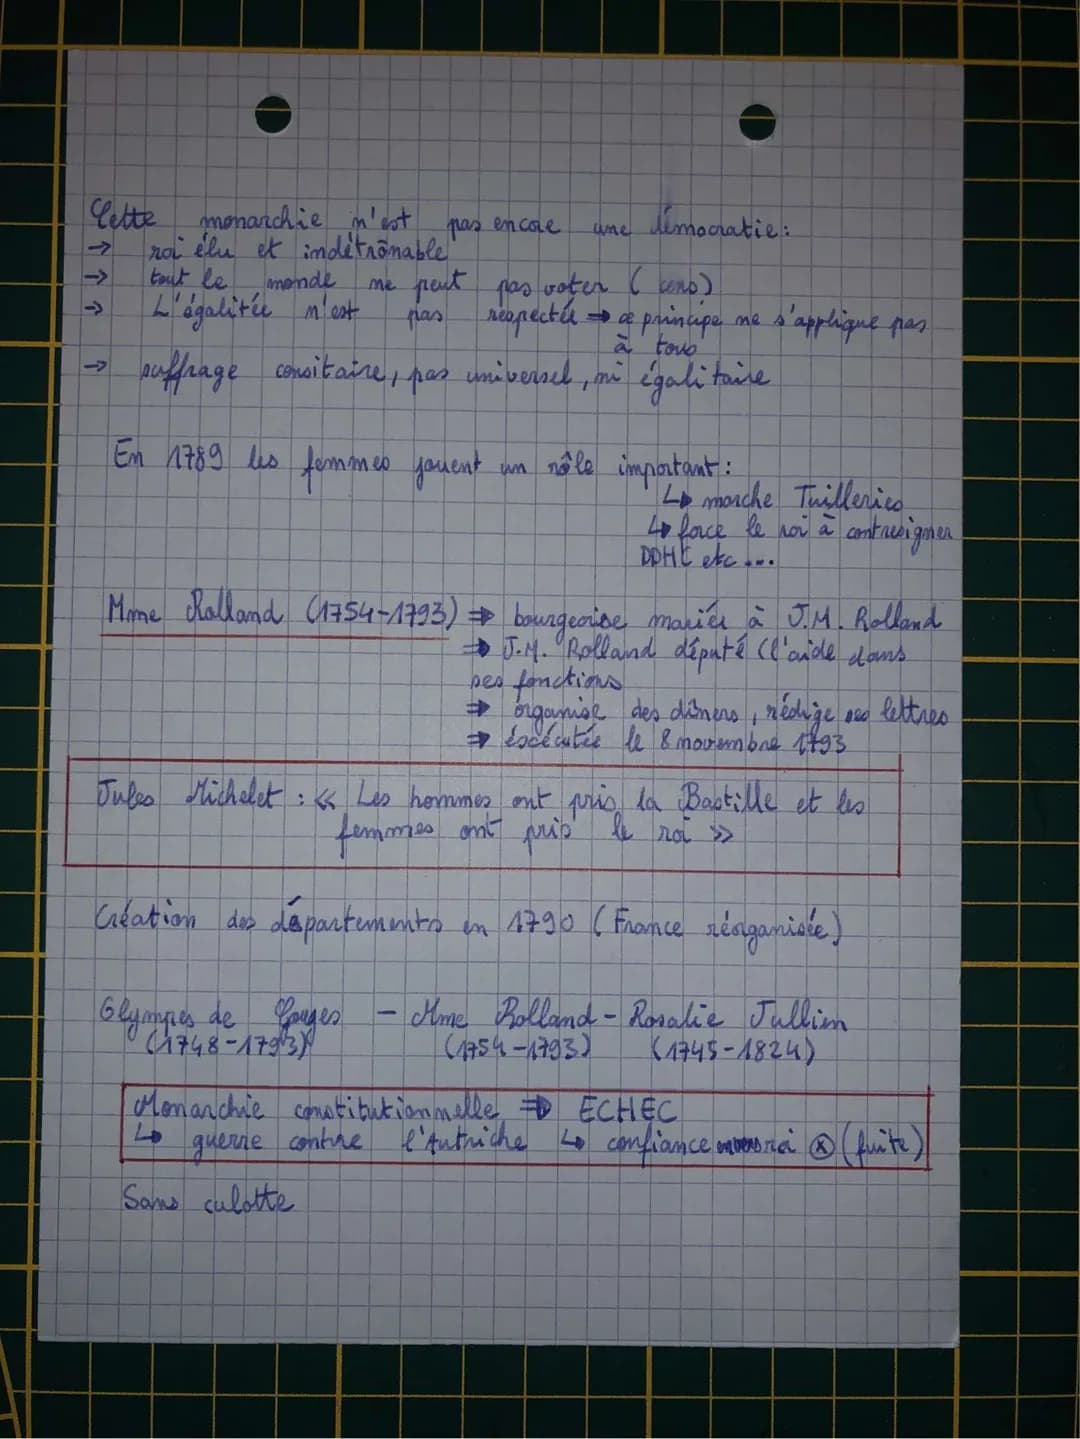 Cette monarchie n'est pas encore une démocratie:
→ roi élu et indétrônable
→ tout le monde ne peut pas voter (cens)
→ L'égalitée n'est pas respectée ⇒ ce principe ne s'applique pas
à tous
→ suffrage censitaire, pas universel, ni égalitaire
En 1789 les femmes jouent un rôle important:
↳ marche Tuilleries
↳ force le roi à contresigner
DDHC etc ...
Mme Rolland (1754-1793) ⇒ bourgeoise mariée à J.M. Rolland
⇒ J.M. Rolland député (l'aide dans
ses fonctions
⇒ organise des dîners, rédige ses lettres
⇒ éxécutée le 8 novembre 1793
Jules Michelet : « Les hommes ont pris la Bastille et les
femmes ont pris le roi »
Création des départements en 1790 (France réorganisée)
Olympes de Gouges - Mme Rolland - Rosalie Jullien
(1748-1793) (1754-1793) (1745-1824)
Monarchie constitutionnelle ⇒ ECHEC
↳ guerre contre l'Autriche ↳ confiance roi ⊗ (fuite)
Sans culotte